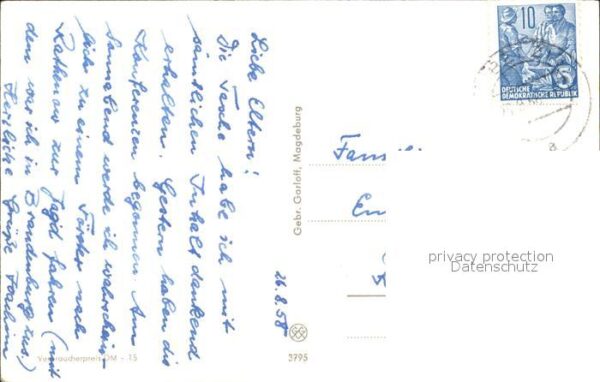 26.8.58
Liebe Eltern!
Die Tasche habe ich mit
sämtlichen Inhalt dankend
erhalten. Gestern haben die
Konferenzen begonnen. Am
Sonnabend werde ich wahrschein-
lich zu einem Förster nach
Rathenow zur Jagd fahren (mit
dem war ich in Brandenburg zus.)
Herzliche Grüße Joachim
Verbraucherpreis DM -.15
Gebr. Garloff, Magdeburg
3795
10
DEUTSCHE
DEMOKRATISCHE REPUBLIK
Fam
privacy protection
Datenschutz